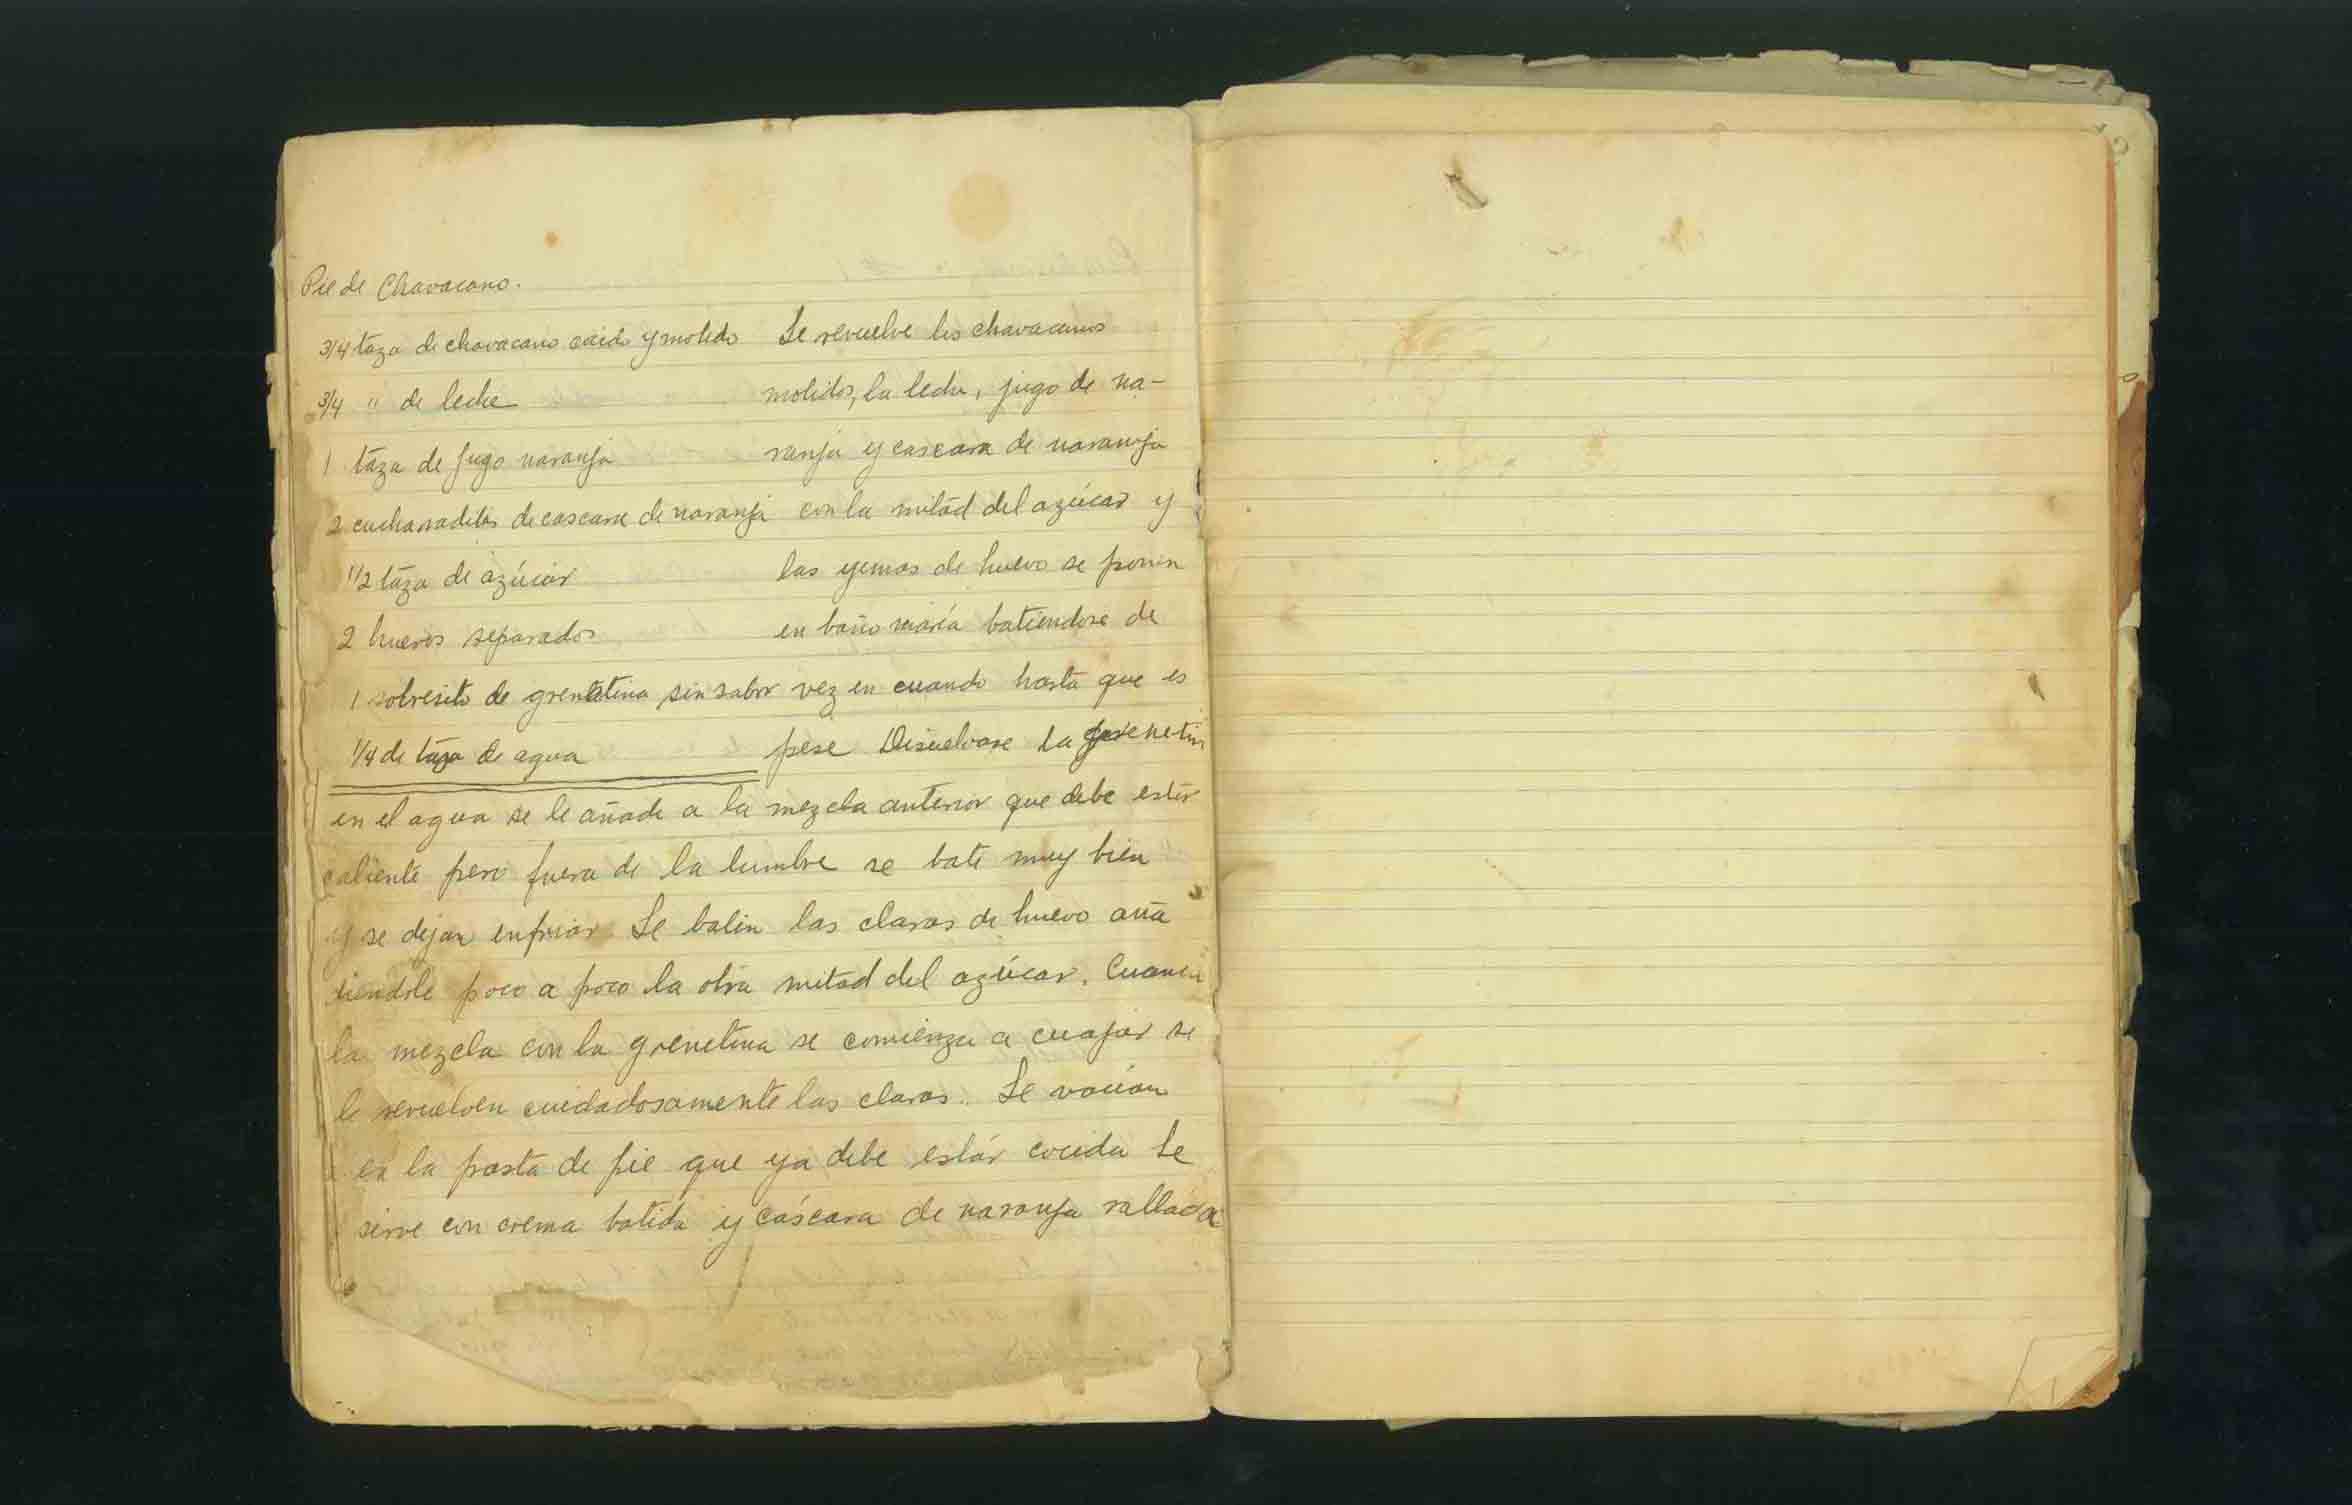 Pie de Chavacano.
3/4 taza de chavacano cocido y molido
3/4 " de leche
1 taza de jugo naranja
2 cucharaditas de cascara de naranja
1/2 taza de azúcar
2 huevos separados
1 sobresito de grenetina sin sabor
1/4 de taza de agua
Se revuelve los chavacanos
molidos, la leche, jugo de na-
ranja y cascara de naranja
con la mitad del azúcar y
las yemas de huevo se ponen
en baño maría batiendose de
vez en cuando hasta que es
pese Disuelvase la grenetin
en el agua se le añade a la mezcla anterior que debe estár
caliente pero fuera de la lumbre se bate muy bien
y se dejan enfriar. Se baten las claras de huevo aña
diendole poco a poco la otra mitad del azúcar. Cuando
la mezcla con la grenetina se comienza a cuajar se
le revuelven cuidadosamente las claras. Se vacian
en la pasta de pie que ya debe estár cocida Se
sirve con crema batida y cáscara de naranja rallada